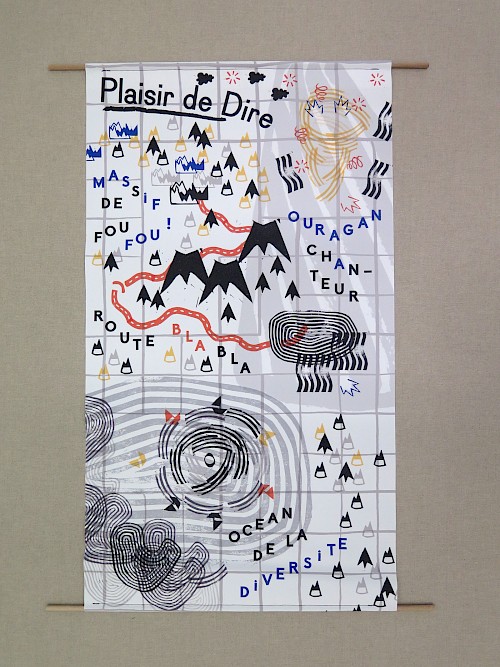 Plaisir de Dire
MASSiF
DE
FOU
FOU !
OURAGAN
CHAN-
TEUR
ROUTE BLABLA
OCEAN
DE LA
DiVERSiTE